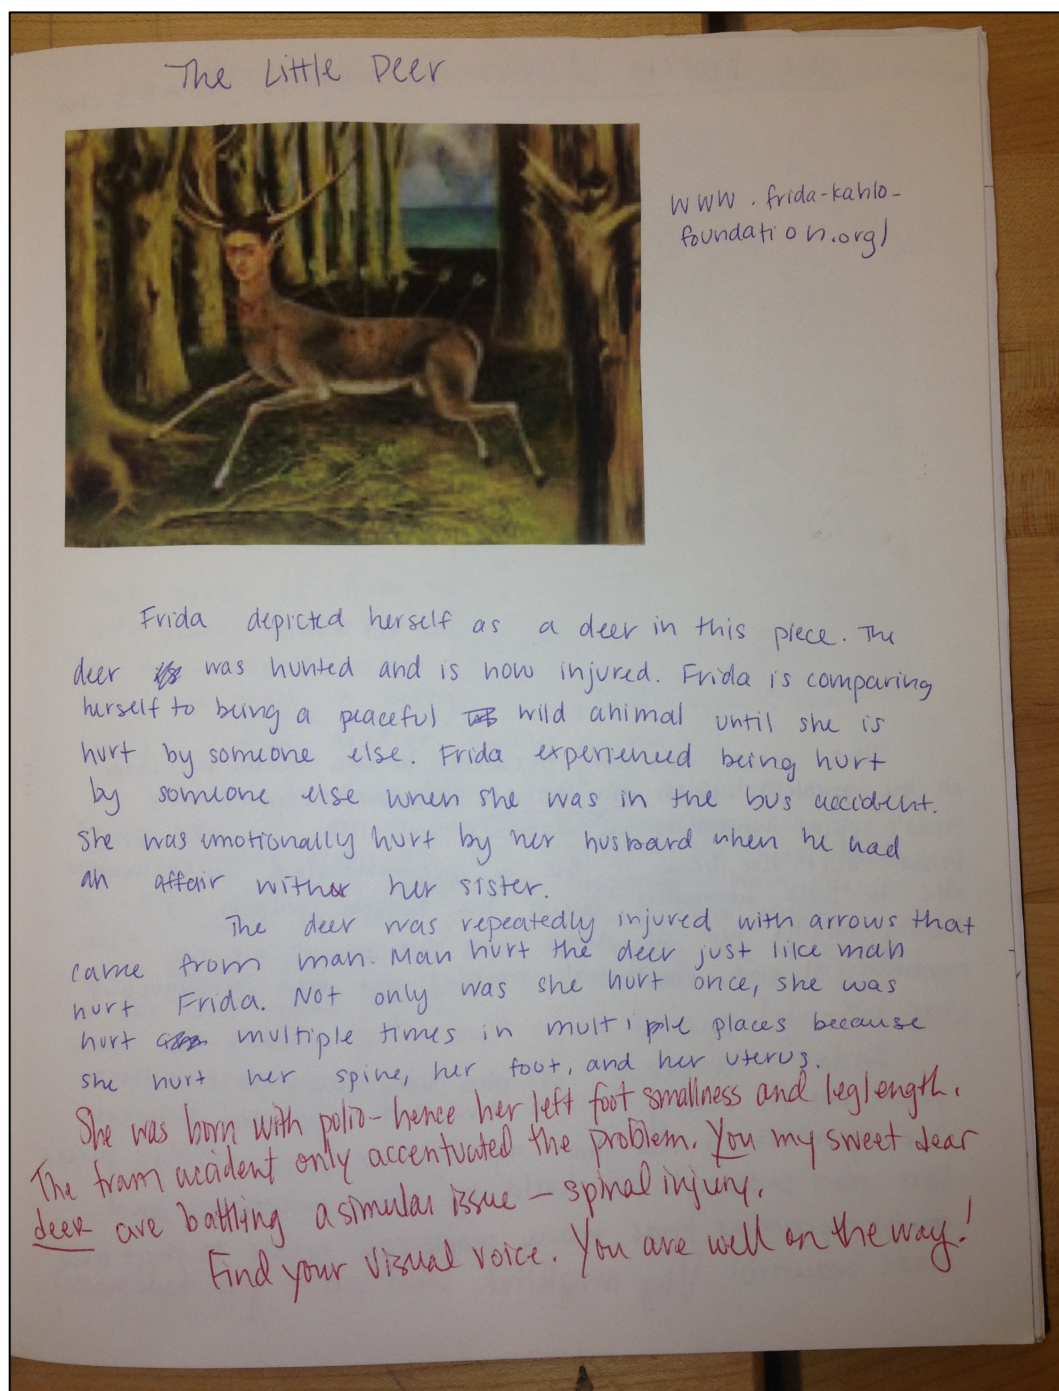 The Little Deer
www.frida-kahlo-
foundation.org/
Frida depicted herself as a deer in this piece. The
deer was hunted and is now injured. Frida is comparing
herself to being a peaceful wild animal until she is
hurt by someone else. Frida experienced being hurt
by someone else when she was in the bus accident.
She was emotionally hurt by her husband when he had
an affair with her sister.
The deer was repeatedly injured with arrows that
came from man. Man hurt the deer just like man
hurt Frida. Not only was she hurt once, she was
hurt multiple times in multiple places because
she hurt her spine, her foot, and her uterus.
She was born with polio - hence her left foot smallness and leg length.
The tram accident only accentuated the problem. You my sweet dear
deer are battling a simular issue - spinal injury.
Find your visual voice. You are well on the way!